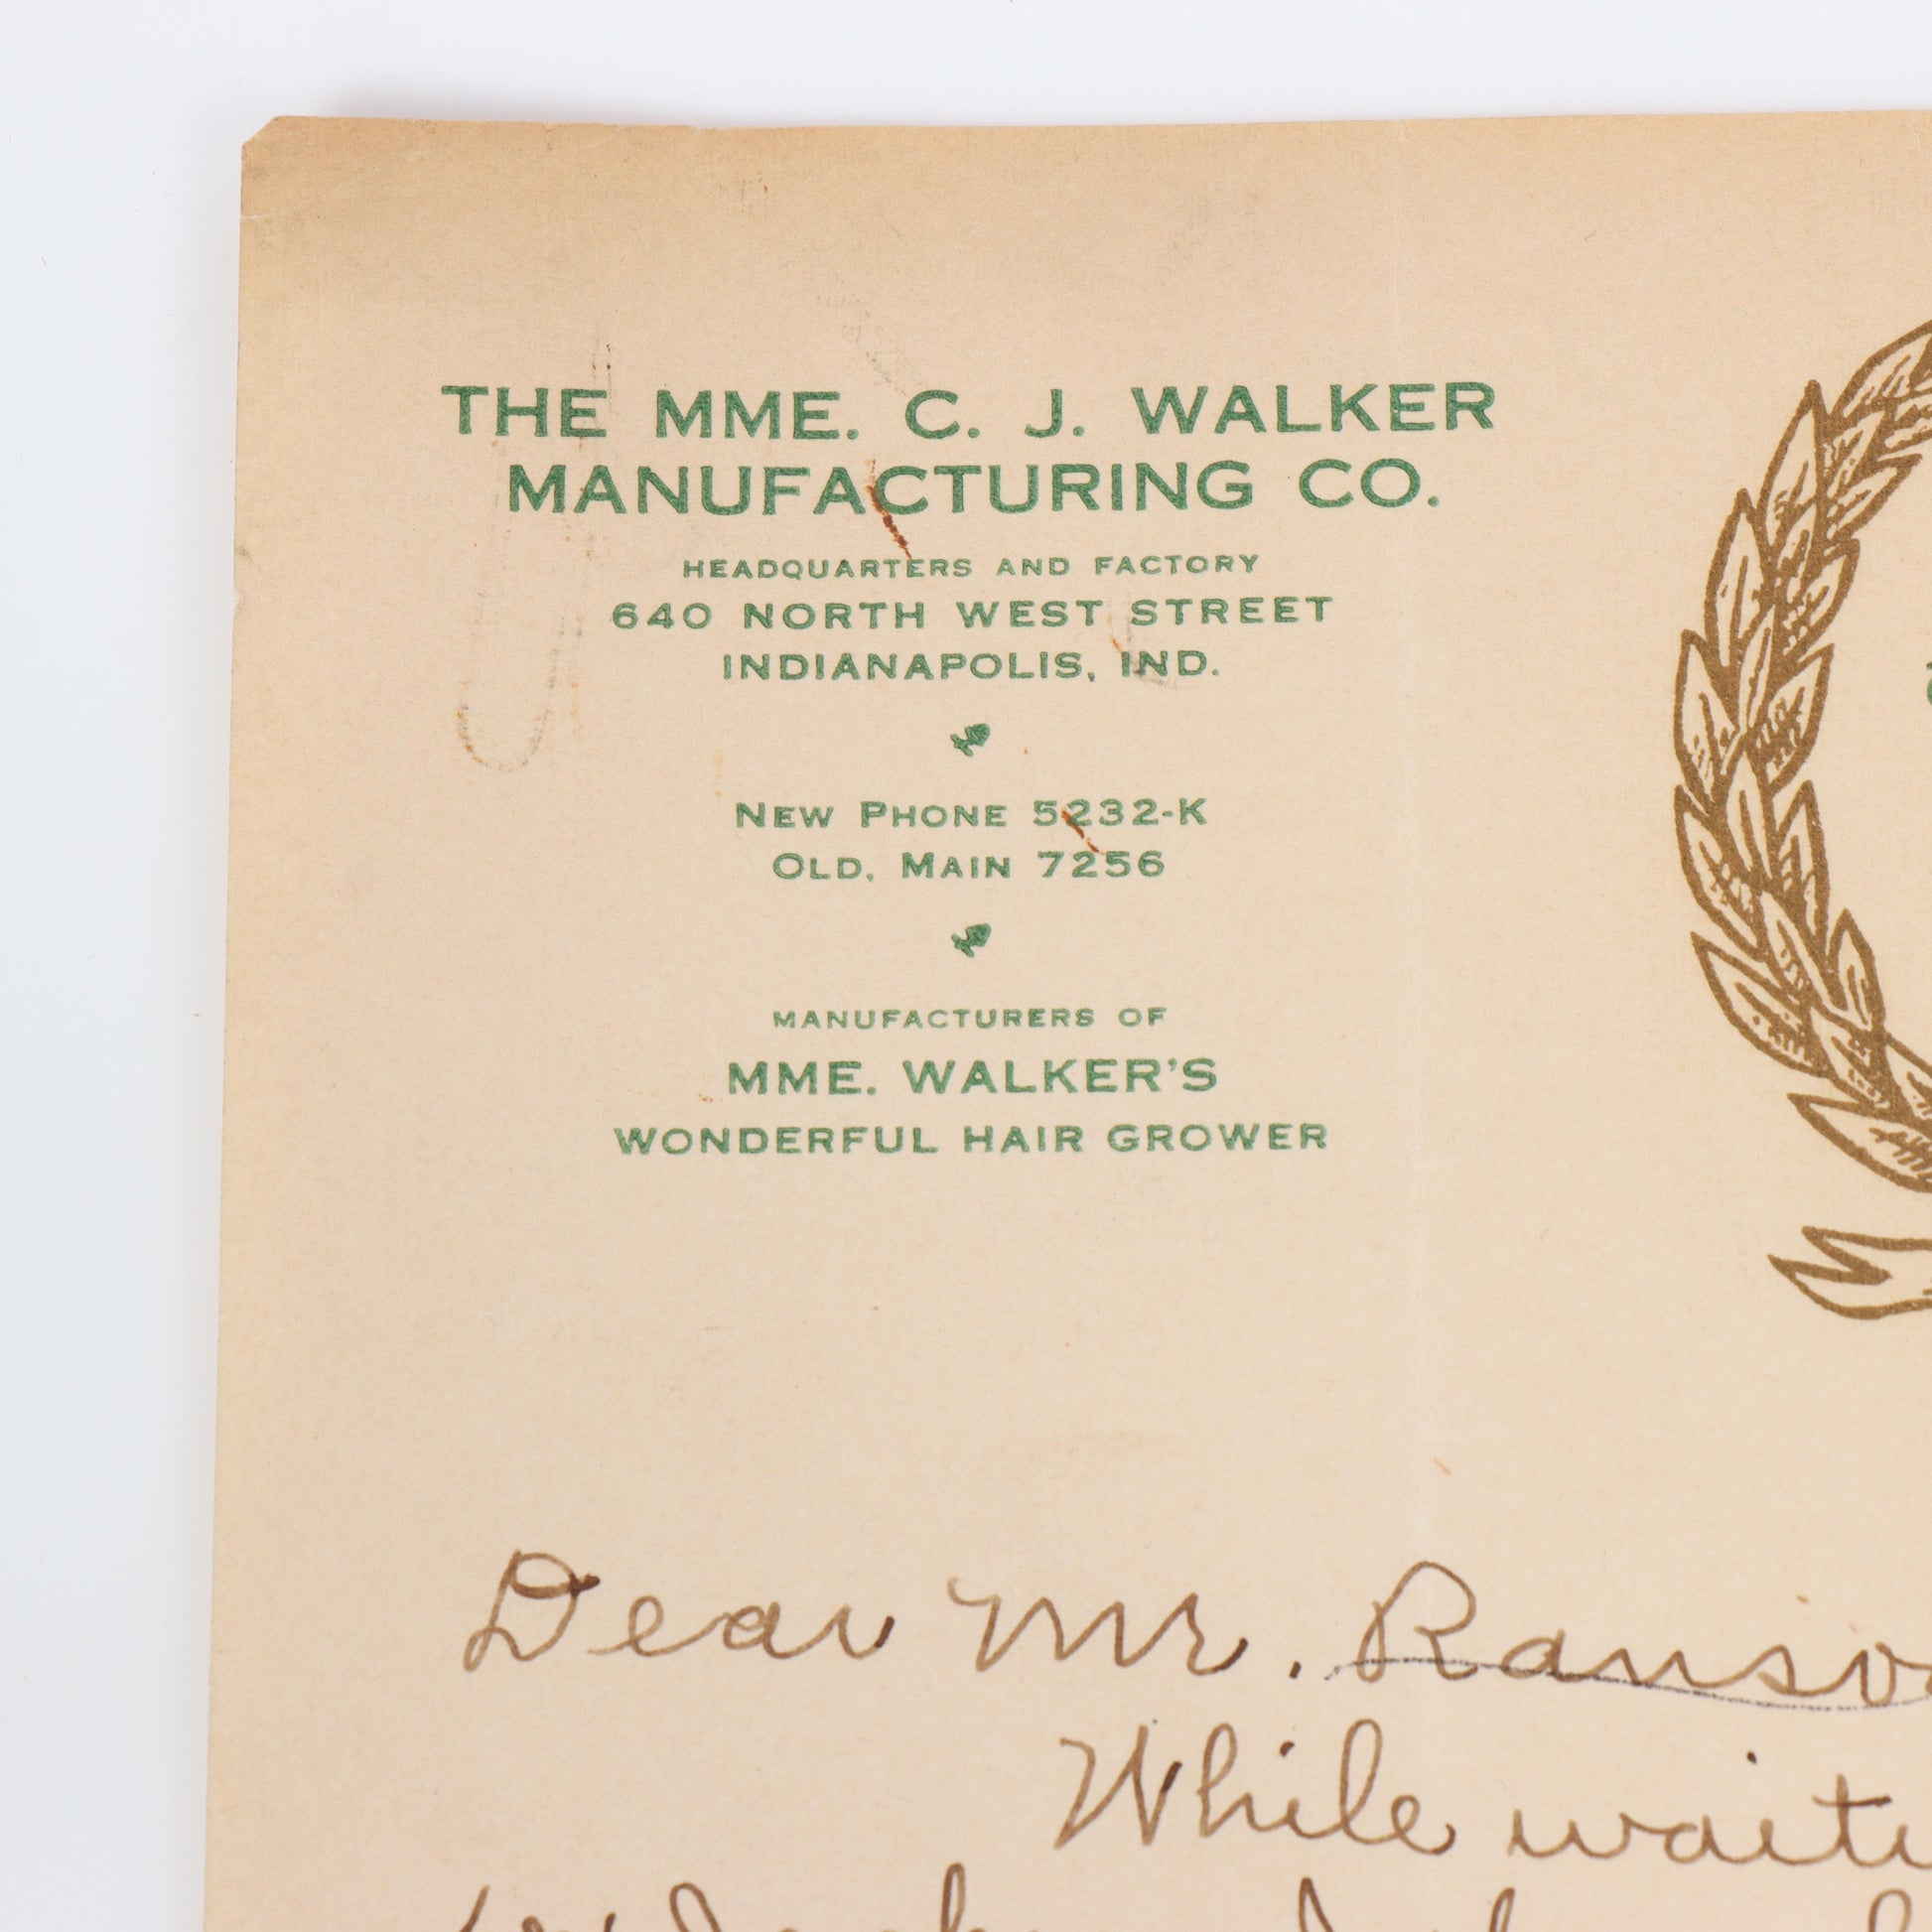 THE MME. C. J. WALKER
MANUFACTURING CO.
HEADQUARTERS AND FACTORY
640 NORTH WEST STREET
INDIANAPOLIS, IND.
NEW PHONE 5232-K
OLD, MAIN 7256
MANUFACTURERS OF
MME. WALKER'S
WONDERFUL HAIR GROWER
Dear Mr. Ranso
While waiti